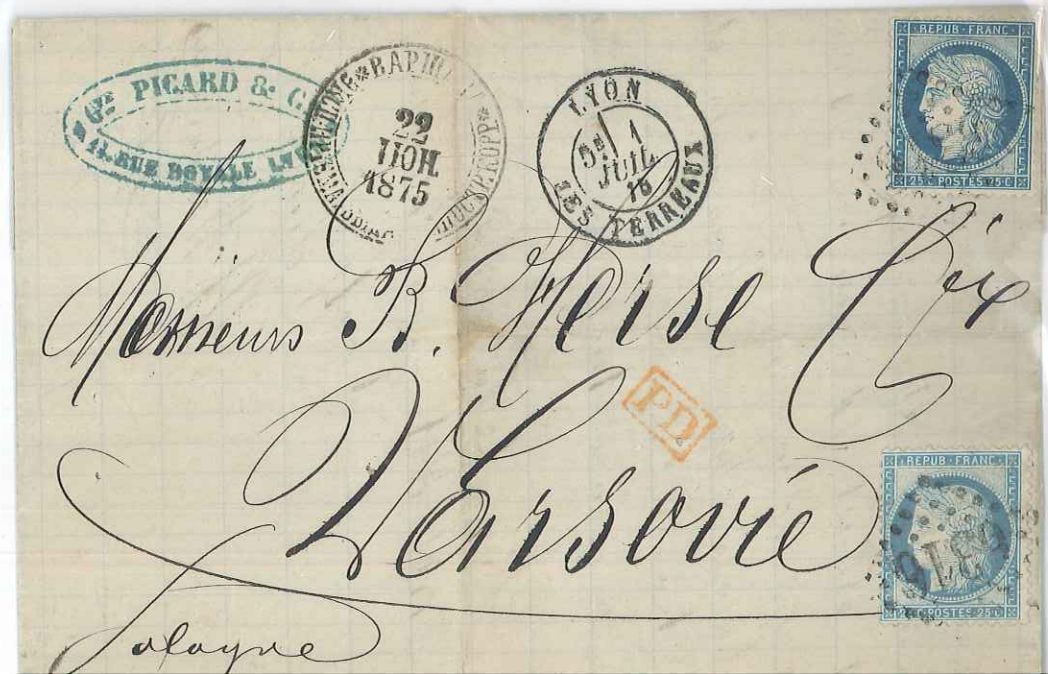 Gve PICARD & C
11. RUE ROYALE LYON
22
ІЮН.
1875
LYON
5E 1
JUIL.
75
LES TERREAUX
REPUB · FRANC ·
25 C · POSTES · 25 C
Messieurs B. Herse & Cie
PD
Varsovie
REPUB · FRANC ·
25 C · POSTES · 25 C
6316
Pologne